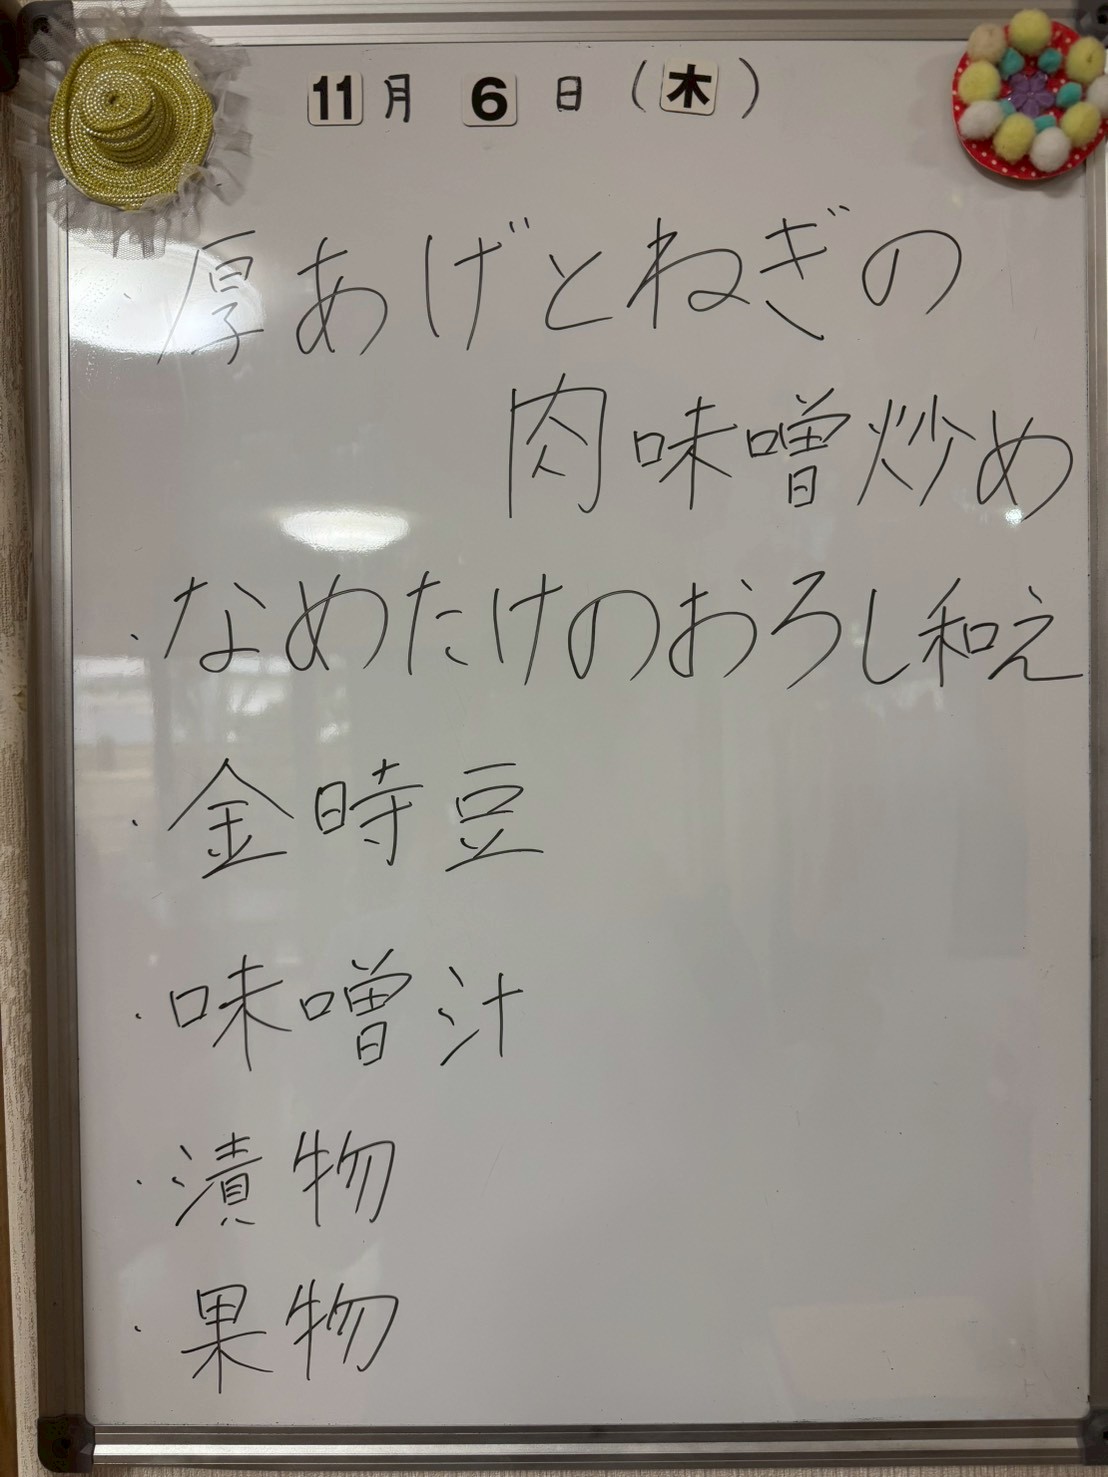 11月 6日(木)
・厚あげとねぎの
肉味噌炒め
・なめたけのおろし和え
・金時豆
・味噌汁
・漬物
・果物